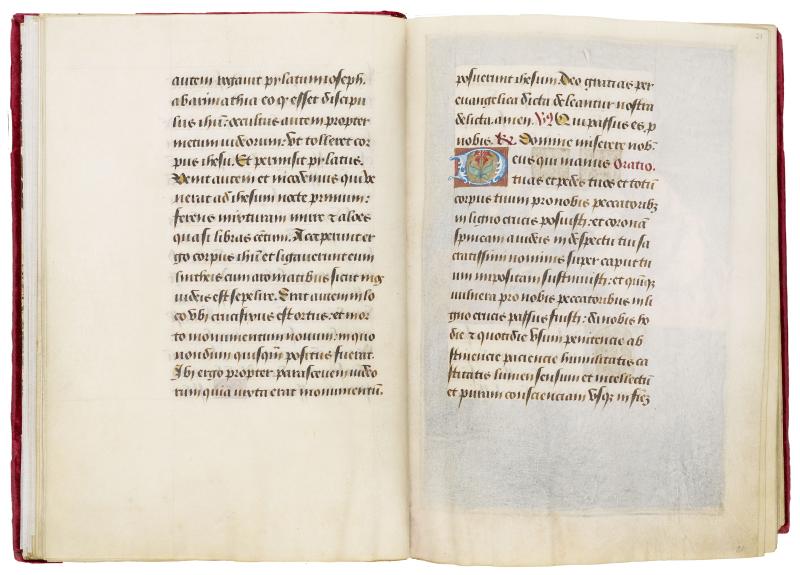 autem rogauit pylatum ioseph.
ab arimathia eo q esset discipu
lus ihu: occultus autem propter
metum iudeorum: vt tolleret cor
pus ihesu. Et permisit pylatus.
Venit autem et nicodemus qui ve
nerat ad ihesum nocte primum:
ferens mixturam mirre ⁊ aloes
quasi libras centum. Acceperunt er
go corpus ihu et ligauerunt eum
lintheis cum aromatibus sicut mos
iudeis est sepelire. Erat autem in lo
co vbi crucifixus est ortus: et in or
to monumentum nouum: in quo
nondum quisqm positus fuerat.
Ibi ergo propter parasceuen iudeo
rum quia iuxta erat monumentu.
21
posuerunt ihesum. Deo gracias per
euangelica dicta deleantur nostra
delicta. amen. Vs Qui passus es p
nobis. Rz Domine miserere nob.
Deus qui manus Oratio.
tuas et pedes tuos et totu
corpus tuum pro nobis peccatoribz
in ligno crucis posuisti: et corona
spineam a iudeis in despectu tui sa
cratissimi nominis super caput tu
um impositam sustinuisti: et quinqz
vulnera pro nobis peccatoribus in li
gno crucis passus fuisti: da nobis ho
die ⁊ quotidie vsum penitencie ab
stinencie paciencie humilitatis ca
stitatis lumen sensum et intellectu
et puram conscienciam vsqz in fine